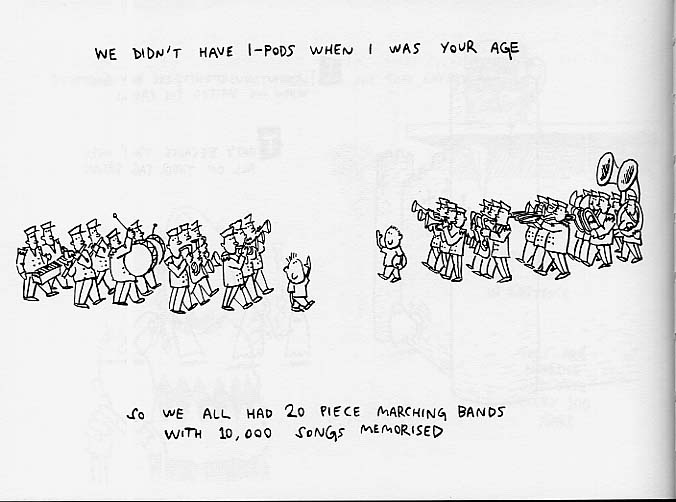 WE DIDN'T HAVE I-PODS WHEN I WAS YOUR AGE
SO WE ALL HAD 20 PIECE MARCHING BANDS
WITH 10,000 SONGS MEMORISED